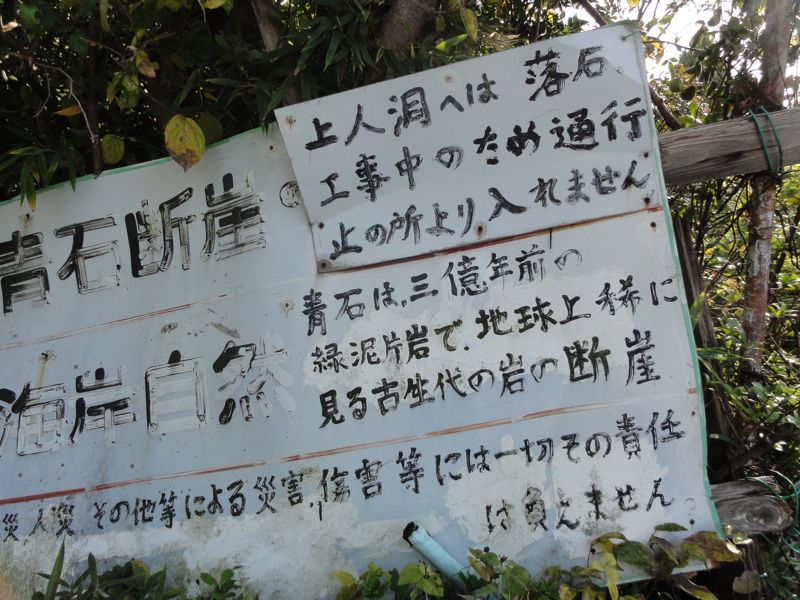 上人洞へは落石、
工事中のため通行
止の所より入れません
青石断崖。
青石は、三億年前の
緑泥片岩で、地球上稀に
見る古生代の岩の断崖
海岸自然
災人災その他等による災害、傷害等には一切その責任
は負えません。